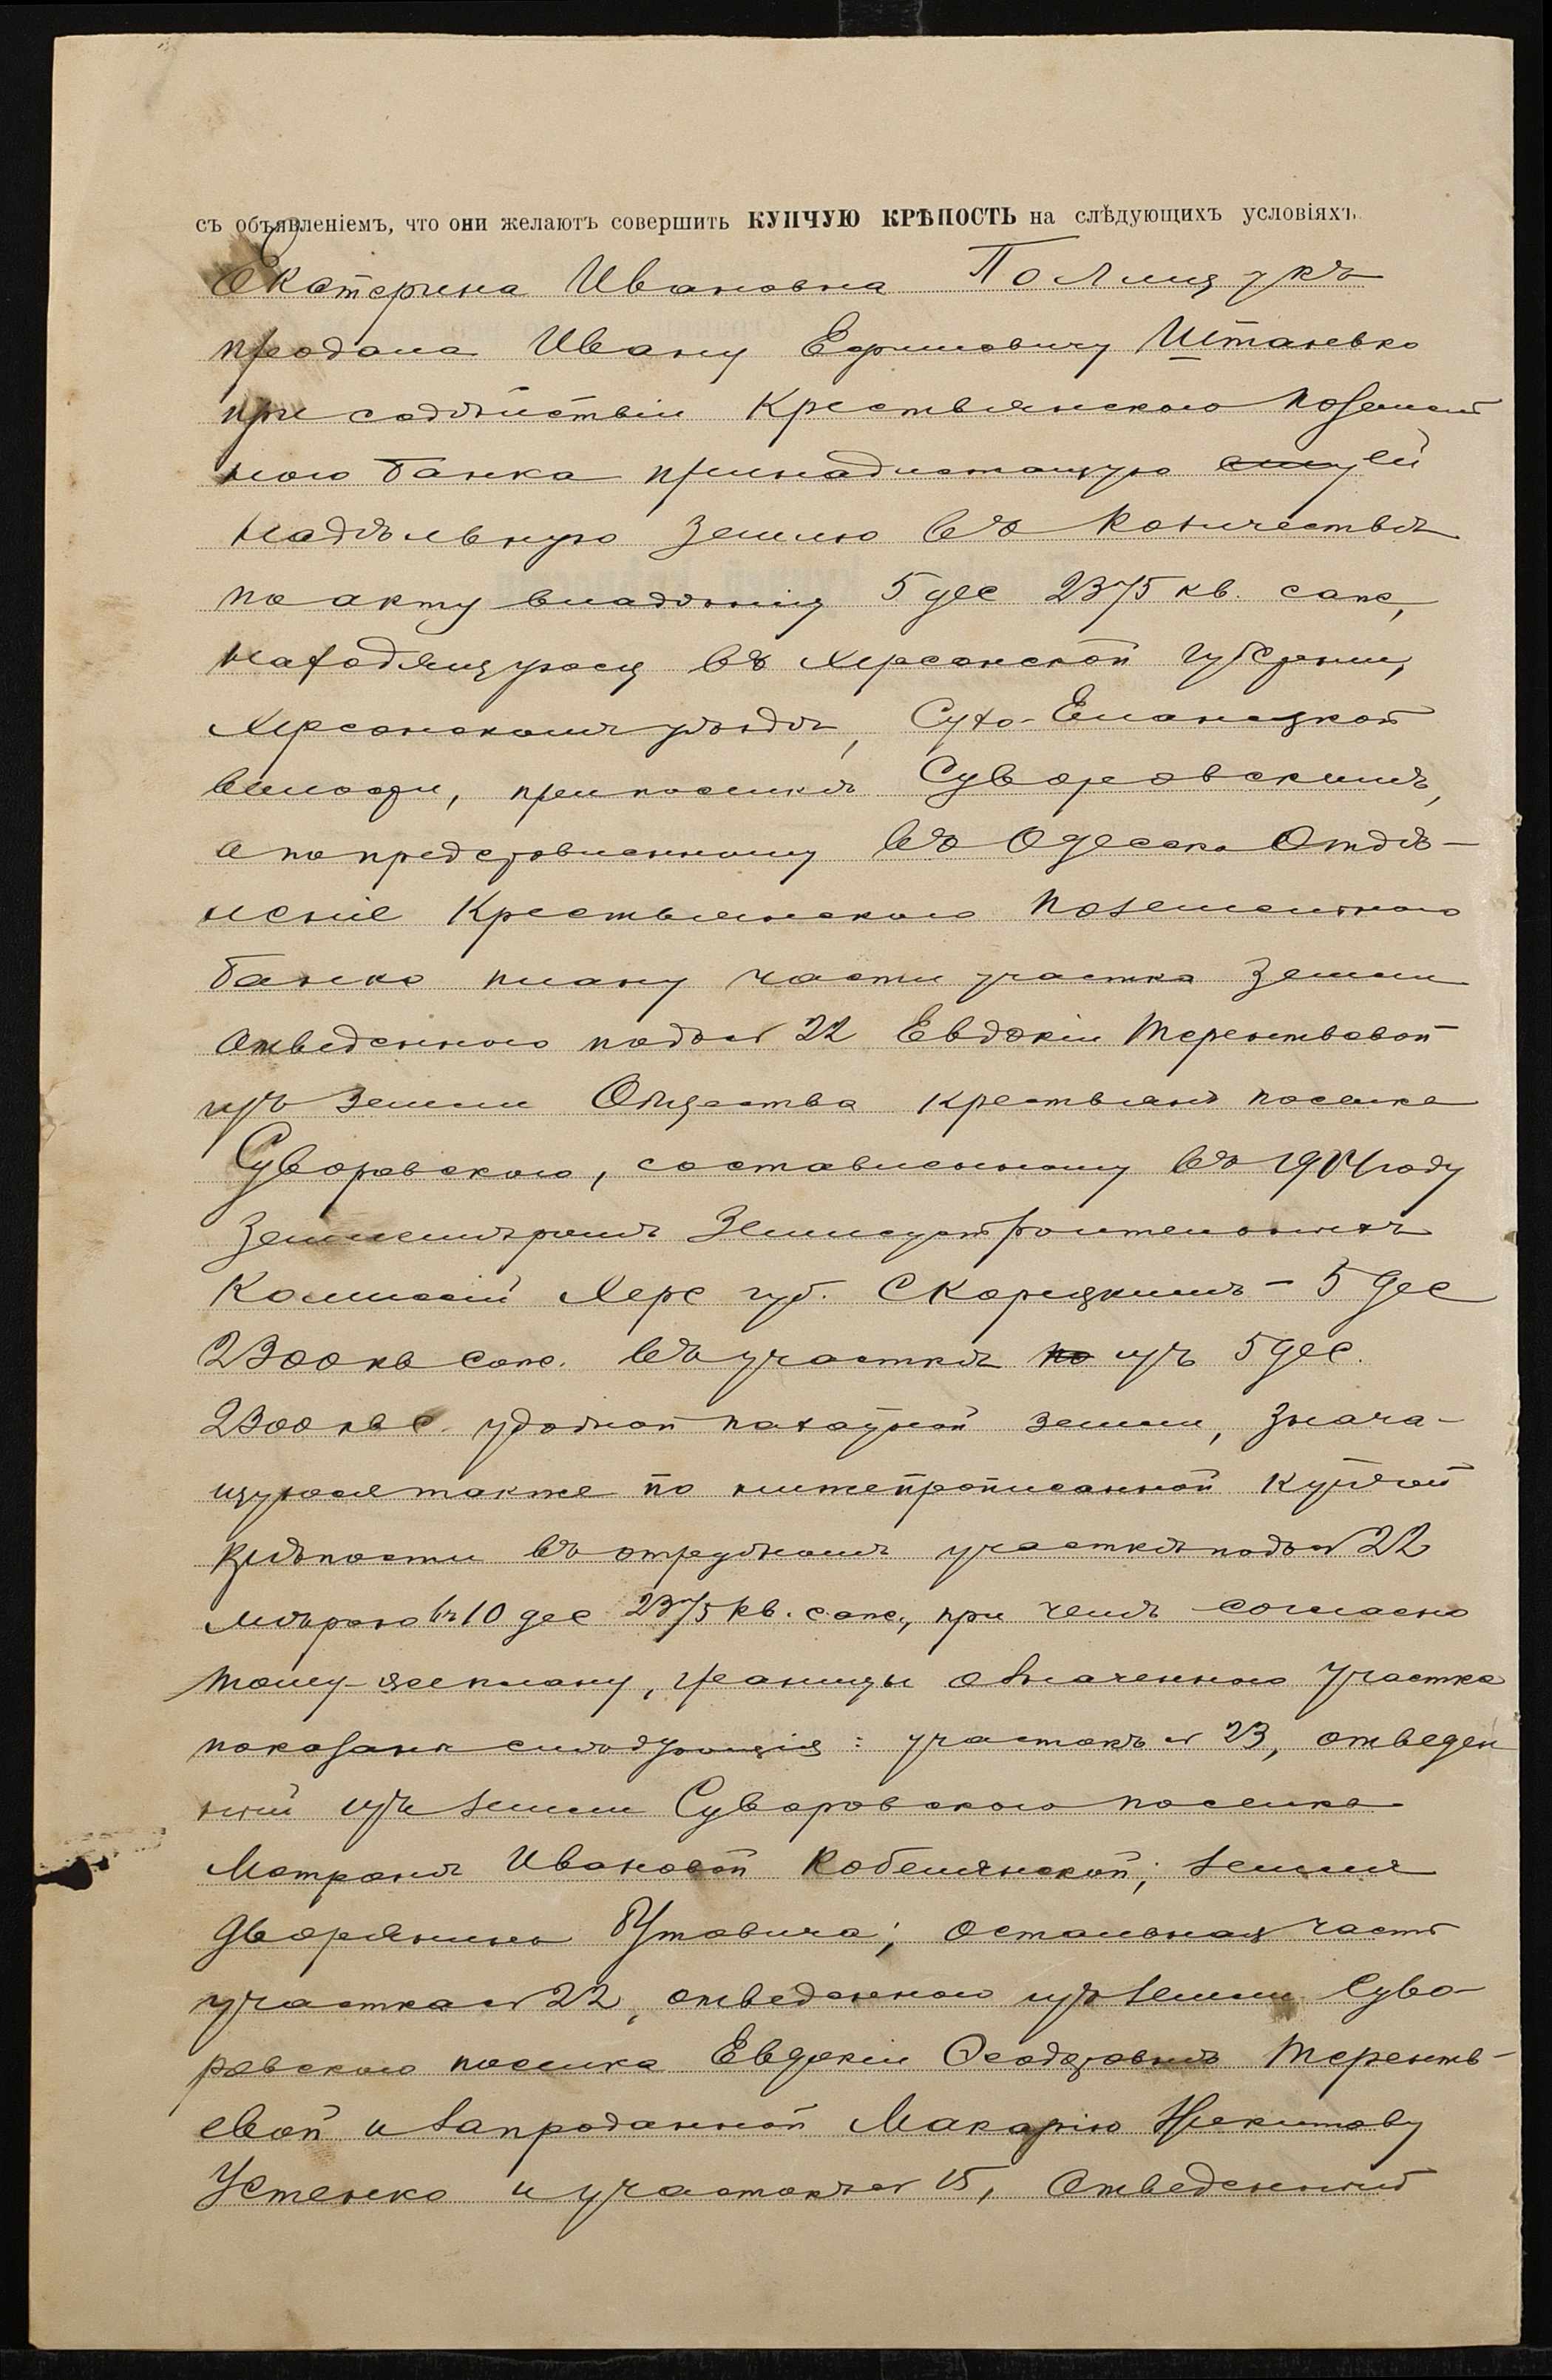 съ объявленіемъ, что они желаютъ совершить КУПЧУЮ КРѢПОСТЬ на слѣдующихъ условіяхъ
Екатерина Ивановна Полищукъ
продала Ивану Ефимовичу Штаневко
при содѣйствіи Крестьянскаго Поземель
наго банка принадлежащую ей
надѣльную землю въ количествѣ
по акту владѣнія 5 дес 2375 кв. саж,
находящуюся въ Херсонской губерніи,
Херсонскомъ уѣздѣ, Сухо-Еланецкой
волости, при поселкѣ Суворовскимъ,
а по представленному въ Одесско Отдѣ-
леніе Крестьянскаго Поземельнаго
банка плану части участка земли
отведеннаго подъ № 22 Евдокіи Терентьевой
изъ земли Общества крестьянъ поселка
Суворовскаго, составленному въ 1914 году
землемѣромъ Землеустроительныхъ
Комиссій Херс губ. Скорицкимъ – 5 дес
2300 кв саж. въ участкѣ по изъ 5 дес.
2300 кв с. удобной пахатной земли, знача-
щуюся также по нижепрописанной купчей
крѣпости въ отрубномъ участкѣ подъ № 22
мѣрою въ 10 дес 2375 кв. саж, при чемъ согласно
тому-же плану, границы означеннаго участка
показаны слѣдующія: участокъ № 23, отведен
ный изъ земли Суворовскаго поселка
Матронѣ Ивановой Кобелянской; земля
дворянина Утовича; остальная часть
участка № 22, отведеннаго изъ земли Суво-
ровскаго поселка Евдокіи Ѳеодоровнѣ Терентъ-
евой и запроданной Макарію Никитову
Устенко и участокъ № 15, отведенный